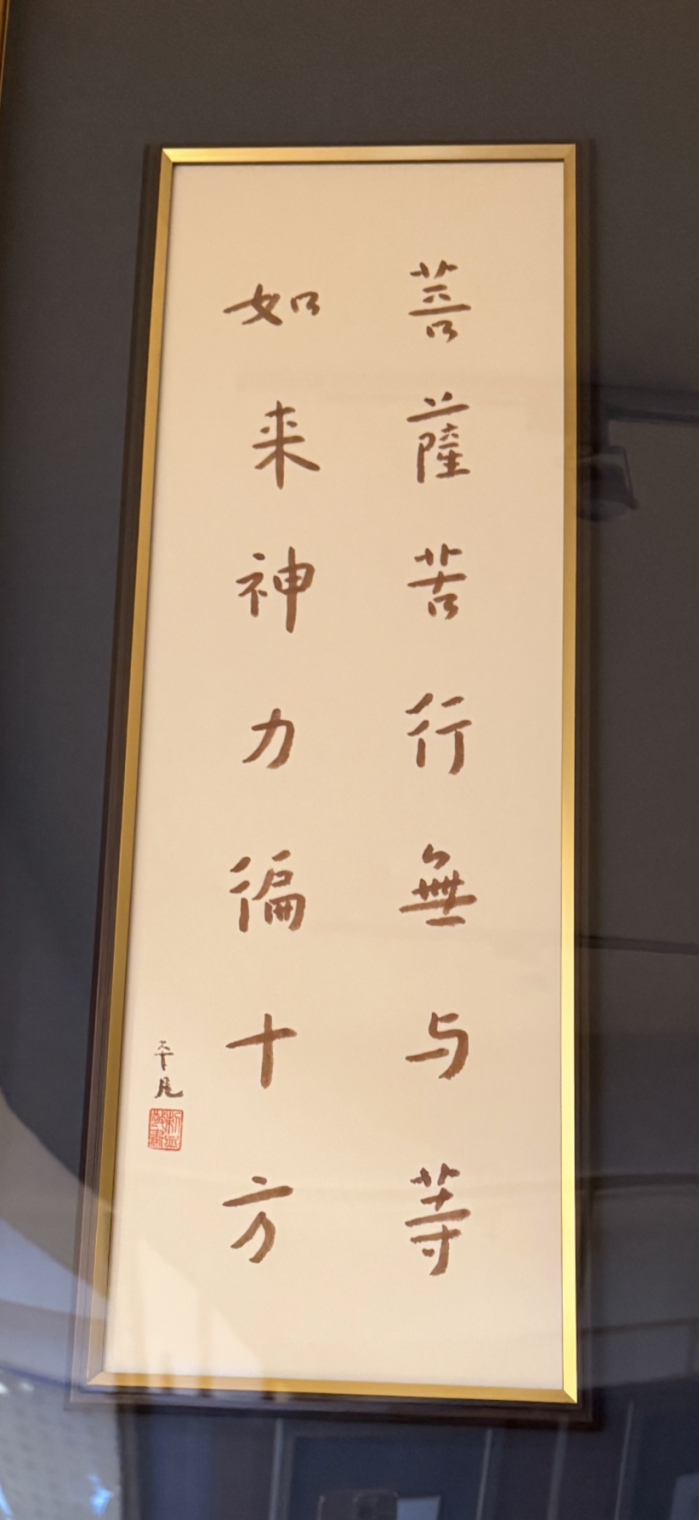 菩薩苦行無与等
如来神力徧十方
平凡